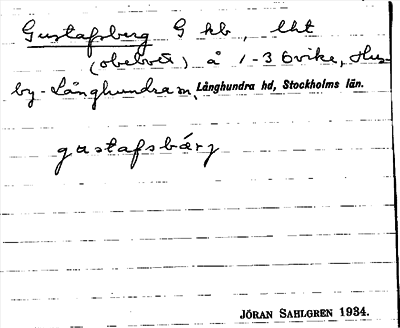 Gustafsberg G kb, lht
(obebott) å 1-3 Ovike, Hus-
by-Långhundra sn, Långhundra hd, Stockholms län.
gustafsbærj
JÖRAN SAHLGREN 1934.